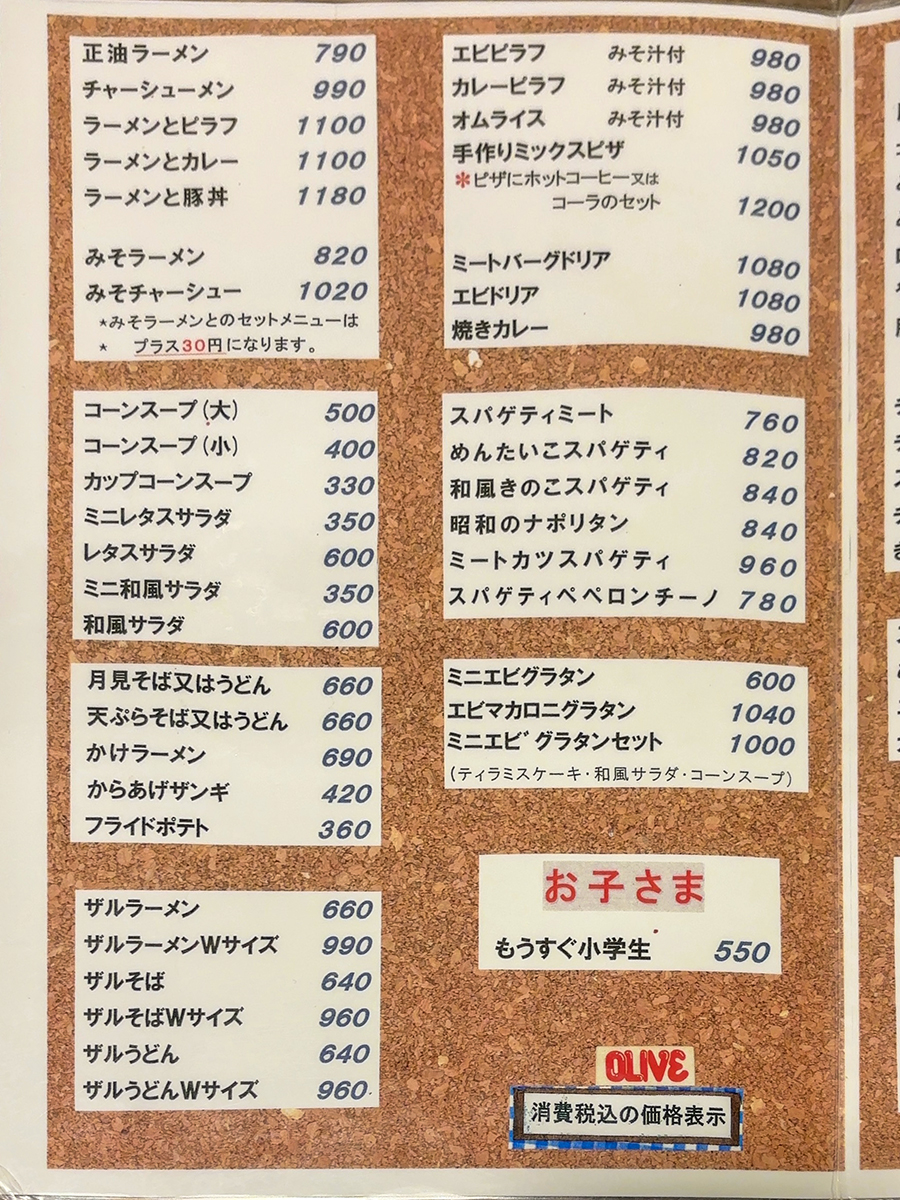 正油ラーメン 790
チャーシューメン 990
ラーメンとピラフ 1100
ラーメンとカレー 1100
ラーメンと豚丼 1180
みそラーメン 820
みそチャーシュー 1020
*みそラーメンとのセットメニューは
* プラス30円になります。
コーンスープ(大) 500
コーンスープ(小) 400
カップコーンスープ 330
ミニレタスサラダ 350
レタスサラダ 600
ミニ和風サラダ 350
和風サラダ 600
月見そば又はうどん 660
天ぷらそば又はうどん 660
かけラーメン 690
からあげザンギ 420
フライドポテト 360
ザルラーメン 660
ザルラーメンWサイズ 990
ザルそば 640
ザルそばWサイズ 960
ザルうどん 640
ザルうどんWサイズ 960
エビピラフ みそ汁付 980
カレーピラフ みそ汁付 980
オムライス みそ汁付 980
手作りミックスピザ 1050
*ピザにホットコーヒー又は
コーラのセット 1200
ミートバーグドリア 1080
エビドリア 1080
焼きカレー 980
スパゲティミート 760
めんたいこスパゲティ 820
和風きのこスパゲティ 840
昭和のナポリタン 840
ミートカツスパゲティ 960
スパゲティペペロンチーノ 780
ミニエビグラタン 600
エビマカロニグラタン 1040
ミニエビグラタンセット 1000
(ティラミスケーキ・和風サラダ・コーンスープ)
お子さま
もうすぐ小学生 550
OLIVE
消費税込の価格表示